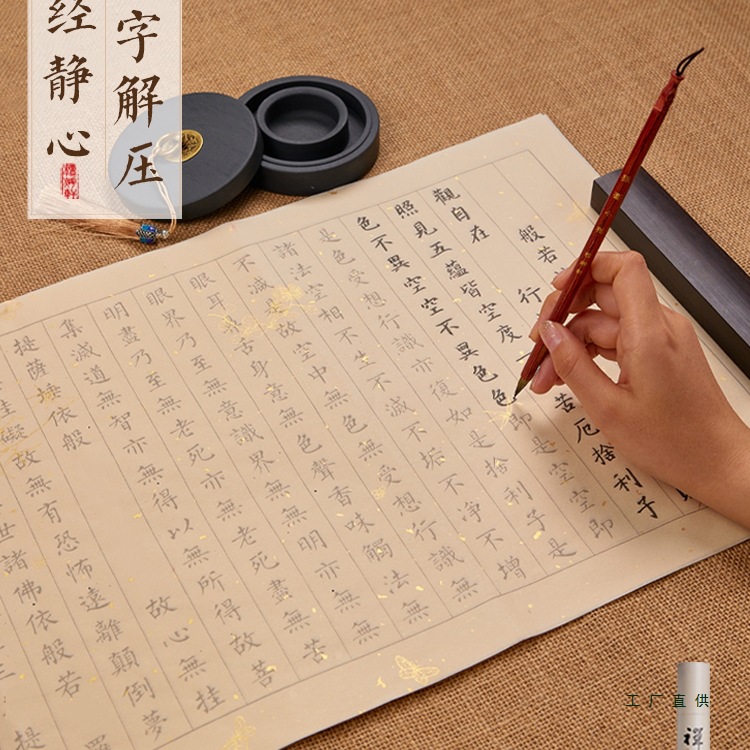 字解压
经静心
般若
行
觀自在
照見五蘊皆空度
苦厄捨利子
色不異空空不異色色即是空空即
是色受想行識亦復如是捨利子是
諸法空相不生不滅不垢不淨不增
不滅是故空中無色無受想行識無
眼耳鼻舌身意無色聲香味觸法無
眼界乃至無意識界無無明亦無
明盡乃至無老死亦無老死盡無苦
集滅道無智亦無得以無所得故菩
提薩埵依般
故心無挂
礙故無有恐怖遠離顛倒夢
世諸佛依般若
工厂直供
禅